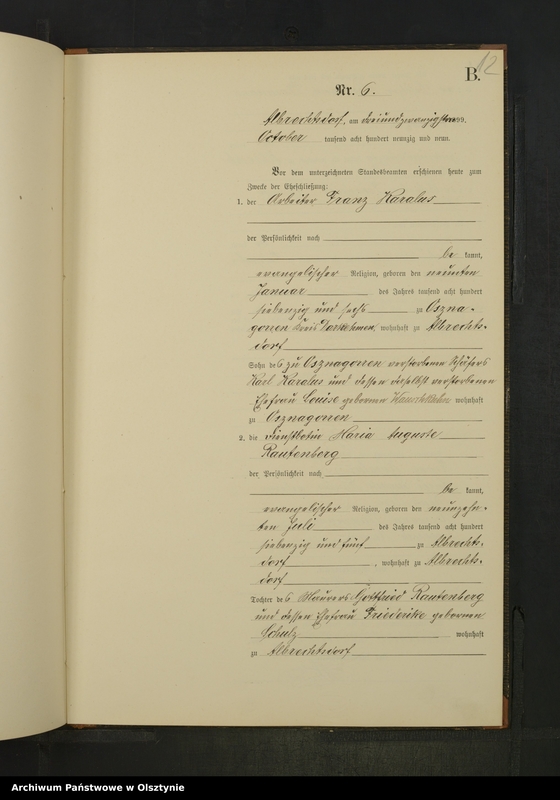 B.
12
Nr. 6.
Albrechtsdorf, am dreiundzwanzigsten
October tausend acht hundert neunzig und neun.
Vor dem unterzeichneten Standesbeamten erschienen heute zum
Zwecke der Eheschließung:
1. der Arbeiter Franz Karalus
der Persönlichkeit nach
be kannt,
evangelischer Religion, geboren den neunten
Januar des Jahres tausend acht hundert
siebenzig und sechs zu Oszna-
gorren Kreis Darkehmen, wohnhaft zu Albrechts-
dorf
Sohn des zu Osznagorren verstorbenen Schäfers
Karl Karalus und dessen daselbst verstorbenen
Ehefrau Louise geborenen wohnhaft
zu Osznagorren
2. die Dienstbotin Maria Auguste
Rautenberg
der Persönlichkeit nach
be kannt,
evangelischer Religion, geboren den neunzehn-
ten Juli des Jahres tausend acht hundert
siebenzig und fünf zu Albrechts-
dorf, wohnhaft zu Albrechts-
dorf
Tochter des Maurers Gottfried Rautenberg
und dessen Ehefrau Friederike geborenen
Schulz wohnhaft
zu Albrechtsdorf
Archiwum Państwowe w Olsztynie